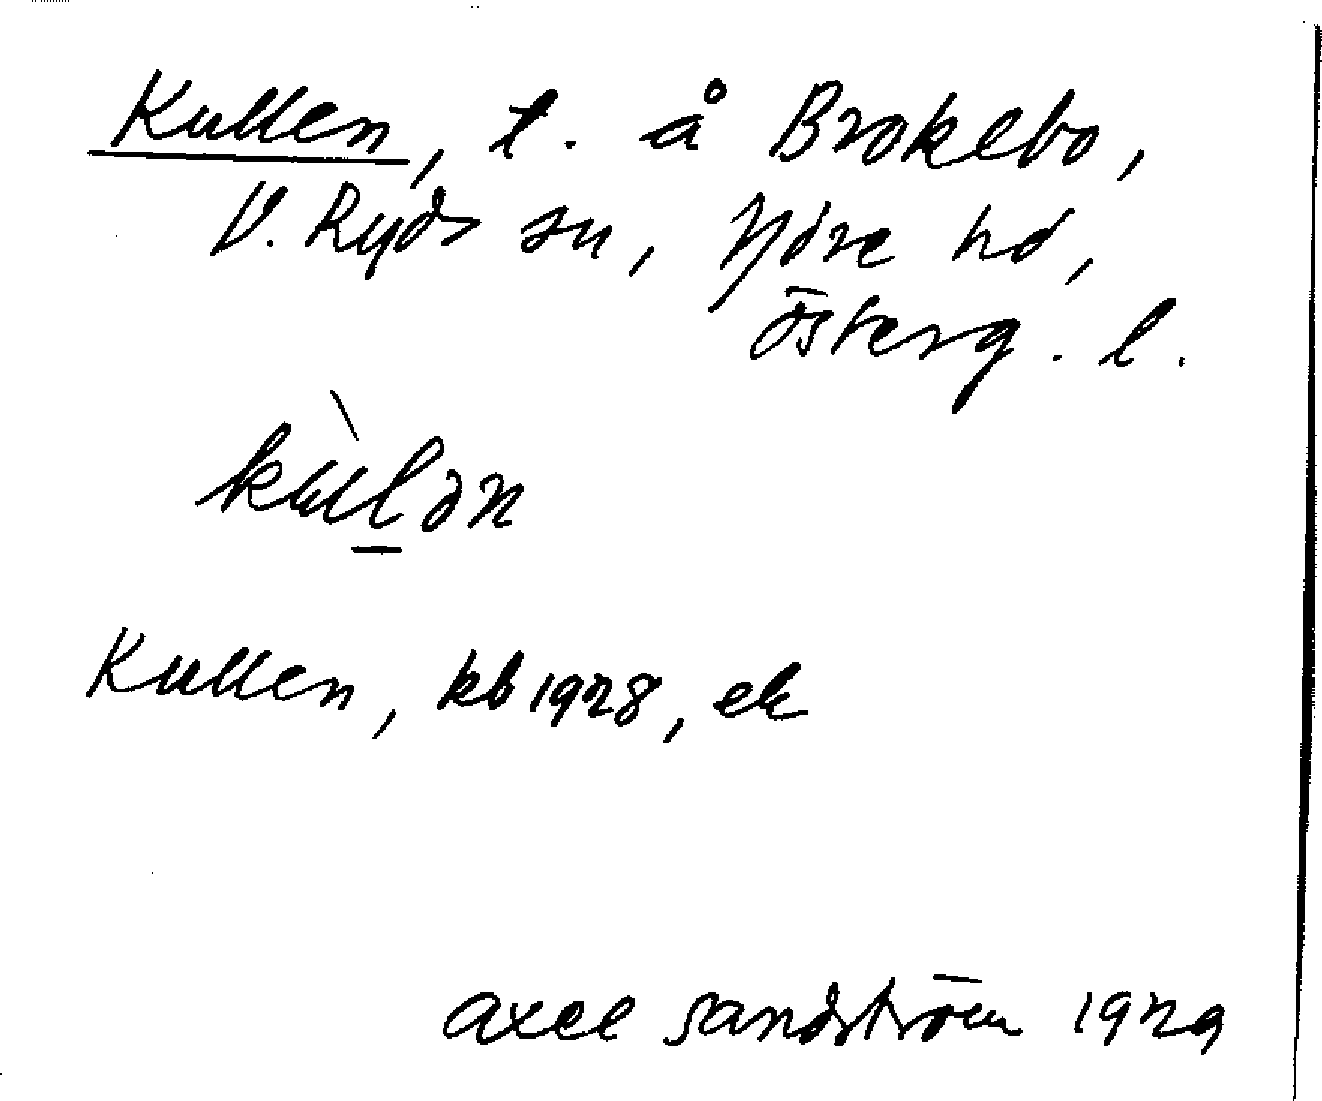 Kullen, t. å Brokebo,
V. Ryds sn, Ydre hd,
Österg. l.
kùlən
Kullen, kb 1928, ek
Axel Sandström 1929